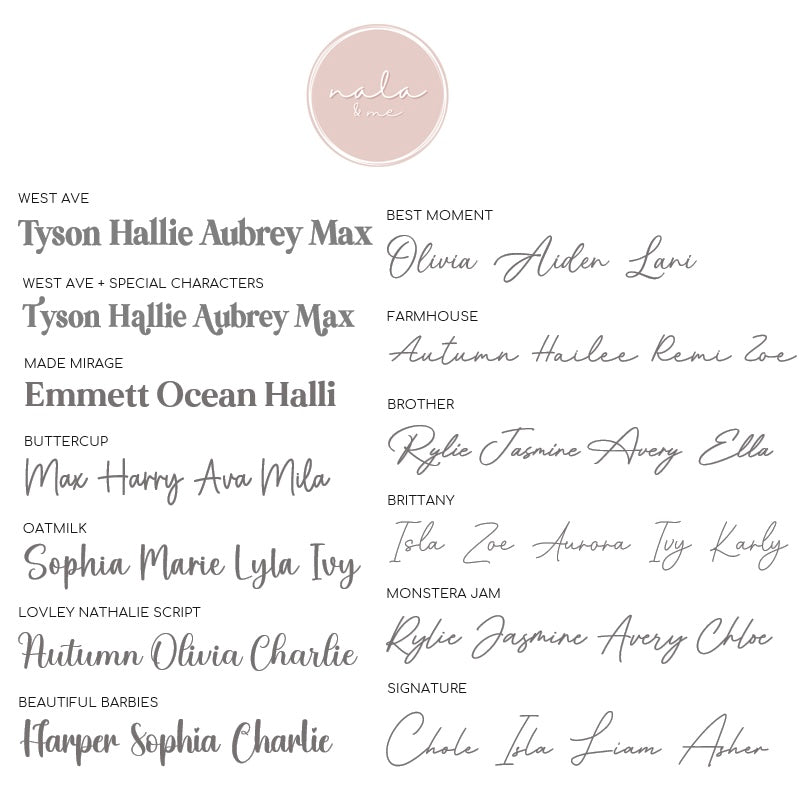 nala
& me
WEST AVE
Tyson Hallie Aubrey Max
WEST AVE + SPECIAL CHARACTERS
Tyson Hallie Aubrey Max
MADE MIRAGE
Emmett Ocean Halli
BUTTERCUP
Max Harry Ava Mila
OATMILK
Sophia Marie Lyla Ivy
LOVLEY NATHALIE SCRIPT
Autumn Olivia Charlie
BEAUTIFUL BARBIES
Harper Sophia Charlie
BEST MOMENT
Olivia Aiden Lani
FARMHOUSE
Autumn Hailee Remi Zoe
BROTHER
Rylie Jasmine Avery Ella
BRITTANY
Isla Zoe Aurora Ivy Karly
MONSTERA JAM
Rylie Jasmine Avery Chloe
SIGNATURE
Chole Isla Liam Asher